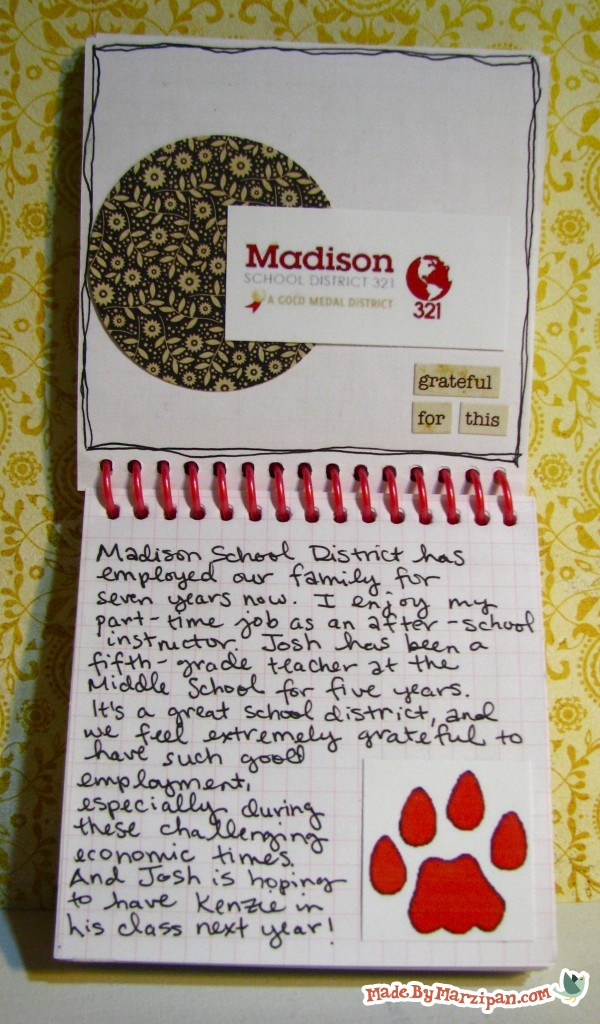 Madison
SCHOOL DISTRICT 321
A GOLD MEDAL DISTRICT
321
grateful
for this
Madison School District has
employed our family for
seven years now. I enjoy my
part-time job as an after-school
instructor. Josh has been a
fifth-grade teacher at the
Middle School for five years.
It's a great school district, and
we feel extremely grateful to
have such good
employment,
especially during
these challenging
economic times.
And Josh is hoping
to have Kenzie in
his class next year!
MadeByMarzipan.com